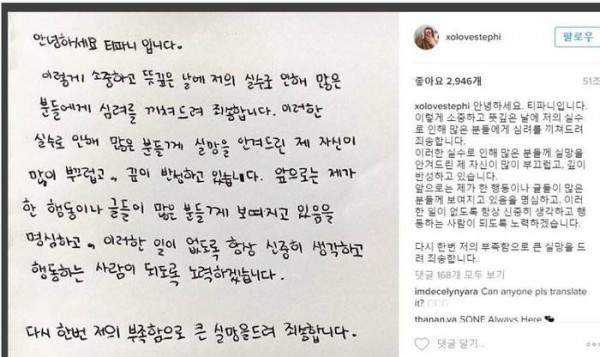 안녕하세요 티파니 입니다.
이렇게 소중하고 뜻깊은 날에 저의 실수로 인해 많은
분들에게 심려를 끼쳐드려 죄송합니다. 이러한
실수로 인해 많은 분들께 실망을 안겨드린 제 자신이
많이 부끄럽고, 깊이 반성하고 있습니다. 앞으로는 제가
한 행동이나 글들이 많은 분들께 보여지고 있음을
명심하고, 이러한 일이 없도록 항상 신중히 생각하고
행동하는 사람이 되도록 노력하겠습니다.
다시 한번 저의 부족함으로 큰 실망을드려 죄송합니다.
xolovestephi
팔로우
좋아요 2,946개
51조
xolovestephi 안녕하세요. 티파니입니다.
이렇게 소중하고 뜻깊은 날에 저의 실수
로 인해 많은 분들에게 심려를 끼쳐드려
죄송합니다.
이러한 실수로 인해 많은 분들께 실망을
안겨드린 제 자신이 많이 부끄럽고, 깊이
반성하고 있습니다.
앞으로는 제가 한 행동이나 글들이 많은
분들께 보여지고 있음을 명심하고, 이러
한 일이 없도록 항상 신중히 생각하고 행
동하는 사람이 되도록 노력하겠습니다.
다시 한번 저의 부족함으로 큰 실망을 드
려 죄송합니다.
댓글 168개 모두 보기
imdecelynyara Can anyone pls translate
it?
thanan.va SONE Always Here
댓글 달기...